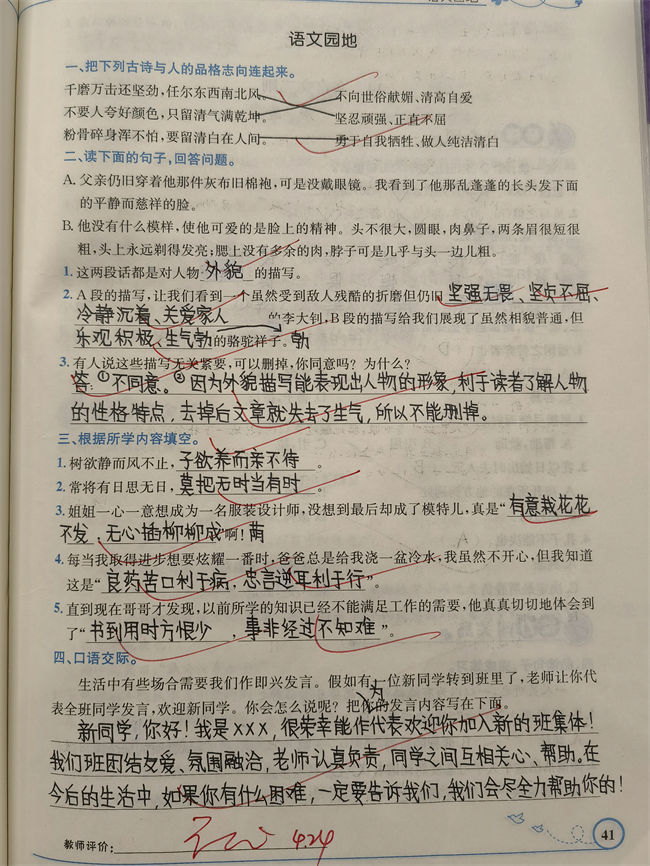 语文园地
一、把下列古诗与人的品格志向连起来。
千磨万击还坚劲，任尔东西南北风。 不向世俗献媚、清高自爱
不要人夸好颜色，只留清气满乾坤。 坚忍顽强、正直不屈
粉骨碎身浑不怕，要留清白在人间。 勇于自我牺牲、做人纯洁清白
二、读下面的句子，回答问题。
A. 父亲仍旧穿着他那件灰布旧棉袍，可是没戴眼镜。我看到了他那乱蓬蓬的长头发下面
的平静而慈祥的脸。
B. 他没有什么模样，使他可爱的是脸上的精神。头不很大，圆眼，肉鼻子，两条眉很短很
粗，头上永远剃得发亮；腮上没有多余的肉，脖子可是几乎与头一边儿粗。
1. 这两段话都是对人物 外貌 的描写。
2. A段的描写，让我们看到一个虽然受到敌人残酷的折磨但仍旧 坚强无畏、坚贞不屈、
冷静沉着、关爱家人 的李大钊，B段的描写给我们展现了虽然相貌普通，但
乐观积极、生气勃 的骆驼祥子。勃
3. 有人说这些描写无关紧要，可以删掉，你同意吗？为什么？
答：①不同意。②因为外貌描写能表现出人物的形象，利于读者了解人物
的性格特点，去掉后文章就失去了生气，所以不能删掉。
三、根据所学内容填空。
1. 树欲静而风不止，子欲养而亲不待。
2. 常将有日思无日，莫把无时当有时。
3. 姐姐一心一意想成为一名服装设计师，没想到最后却成了模特儿，真是“有意栽花花
不发，无心插柳柳成”啊！荫
4. 每当我取得进步想要炫耀一番时，爸爸总是给我浇一盆冷水，我虽然不开心，但我知道
这是“良药苦口利于病，忠言逆耳利于行”。
5. 直到现在哥哥才发现，以前所学的知识已经不能满足工作的需要，他真真切切地体会到
了“书到用时方恨少，事非经过不知难”。
四、口语交际。
生活中有些场合需要我们作即兴发言。假如有一位新同学转到班里了，老师让你代
表全班同学发言，欢迎新同学。你会怎么说呢？把你的发言内容写在下面。
新同学，你好！我是×××，很荣幸能作代表欢迎你加入新的班集体！
我们班团结友爱、氛围融洽，老师认真负责，同学之间互相关心、帮助。在
今后的生活中，如果你有什么困难，一定要告诉我们，我们会尽全力帮助你的！
教师评价： 4.24
41